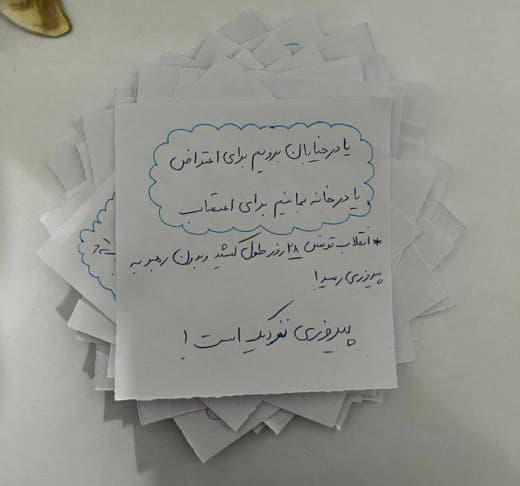 یا در خیابان برویم برای اعتراض
یا در خانه بمانیم برای اعتصاب
* انقلاب تونس ۲۸ روز طول کشید و بدون رهبر به
پیروزی رسید!
پیروزی نزدیک است!